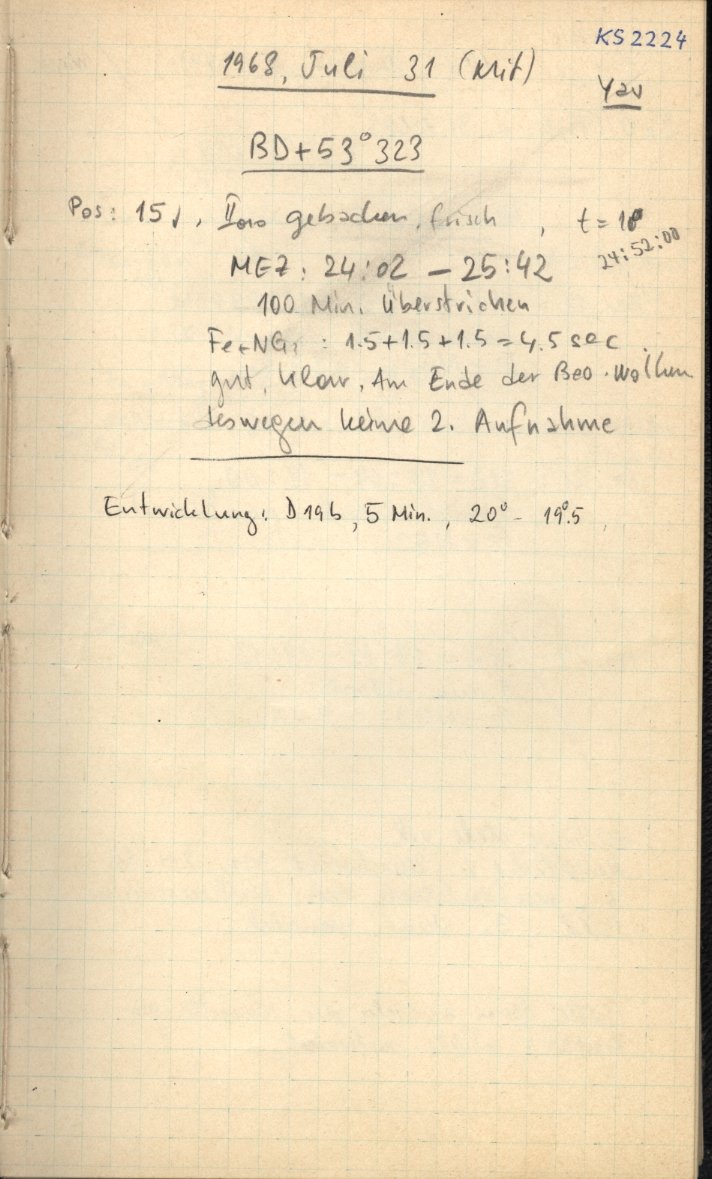 KS 2224
1968, Juli 31 (Mit)
Yav
BD+53°323
Pos: 15, IIaO gebacken, frisch, t = 18°
24:52:00
MEZ: 24:02 – 25:42
100 Min. überstrichen
Fe+NG: 1.5+1.5+1.5 = 4.5 sec.
gut, klar, Am Ende der Beo. Wolken
deswegen keine 2. Aufnahme
Entwicklung: D19b, 5 Min., 20° - 19°.5,